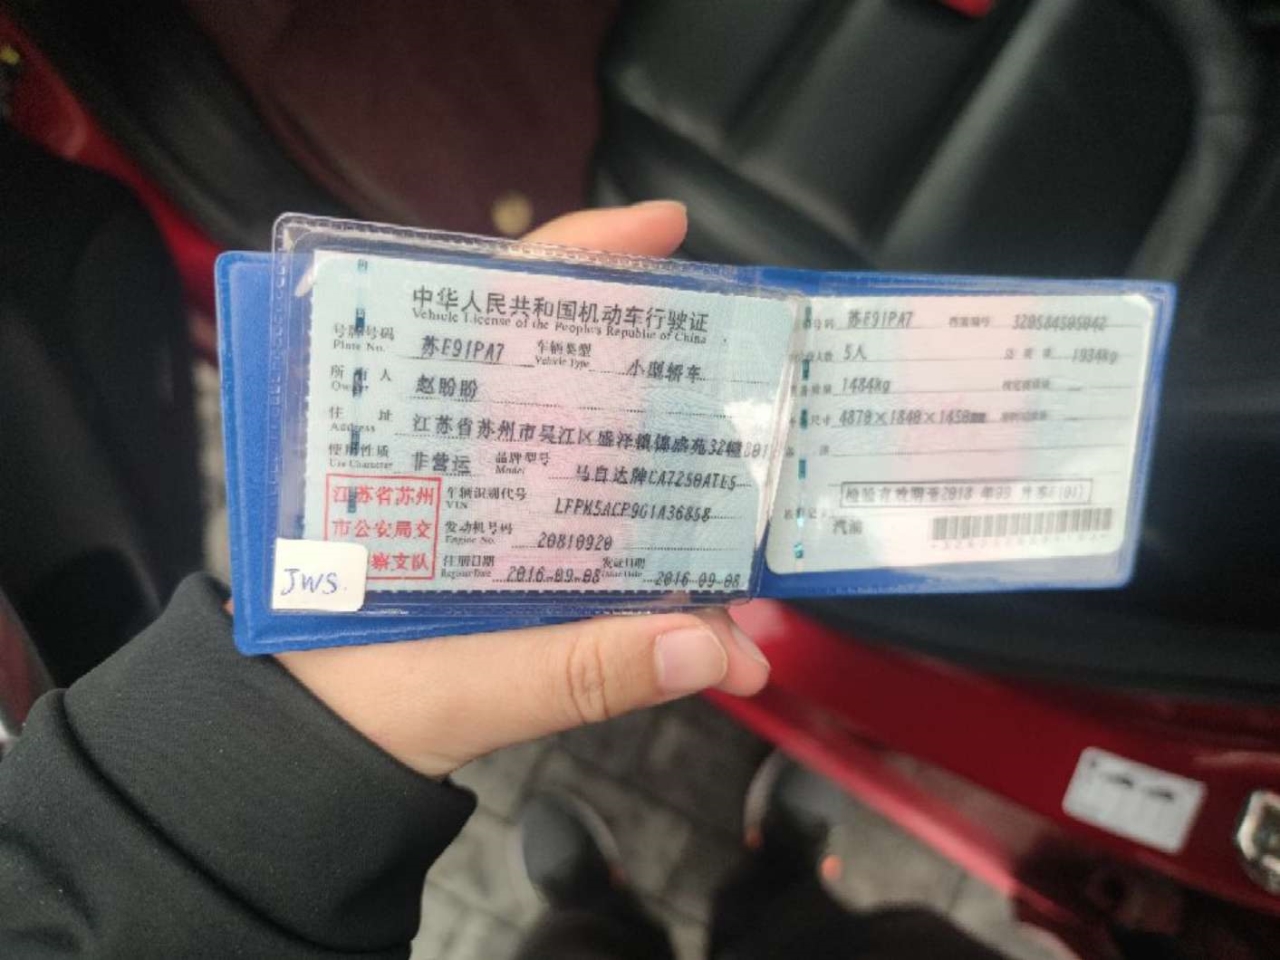 中华人民共和国机动车行驶证
Vehicle License of the People's Republic of China
号牌号码 苏E91PA7 车辆类型 小型轿车
Plate No. Vehicle Type
所有人 赵盼盼
Owner
住址 江苏省苏州市吴江区盛泽镇锦盛苑32幢301
Address
使用性质 非营运 品牌型号 马自达牌CA7250ATE5
Use Character Model
江苏省苏州
市公安局交
察支队
车辆识别代号 LFPM5ACP9G1A36858
VIN
发动机号码 20810920
Engine No.
注册日期 2016-09-08 发证日期 2016-09-08
Register Date Issue Date
JWS.
号码 苏E91PA7 档案编号 320584505042
人数 5人 总质量 1934kg
质量 1484kg
尺寸 4870×1840×1450mm
检验有效期至2018年09月苏E(01)
汽油